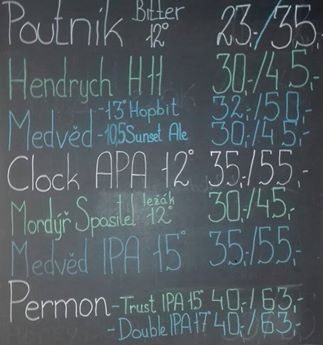 Poutník Bitter 12° 23,-/35,-
Hendrych H11 30,-/45,-
Medvěd -13° Hopbit 32,-/50,-
-10,5 Sunset Ale 30,-/45,-
Clock APA 12° 35,-/55,-
Mordýř Spasitel ležák 12° 30,-/45,-
Medvěd IPA 15° 35,-/55,-
Permon -Trust IPA 15° 40,-/63,-
-Double IPA 17° 40,-/63,-